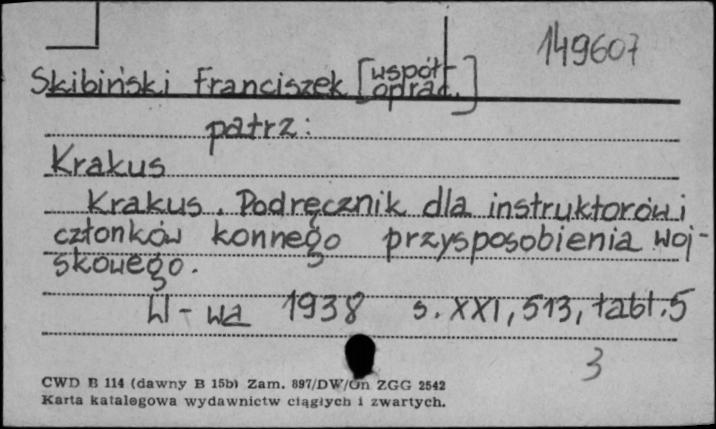 149607
Skibiński Franciszek [współ-
oprac.]
patrz:
Krakus
Krakus. Podręcznik dla instruktorów i
członków konnego przysposobienia woj-
skowego.
W-wa 1938 s. XXI, 513, tabl. 5
3
CWD B 114 (dawny B 15b) Zam. 897/DW/On ZGG 2542
Karta katalogowa wydawnictw ciągłych i zwartych.